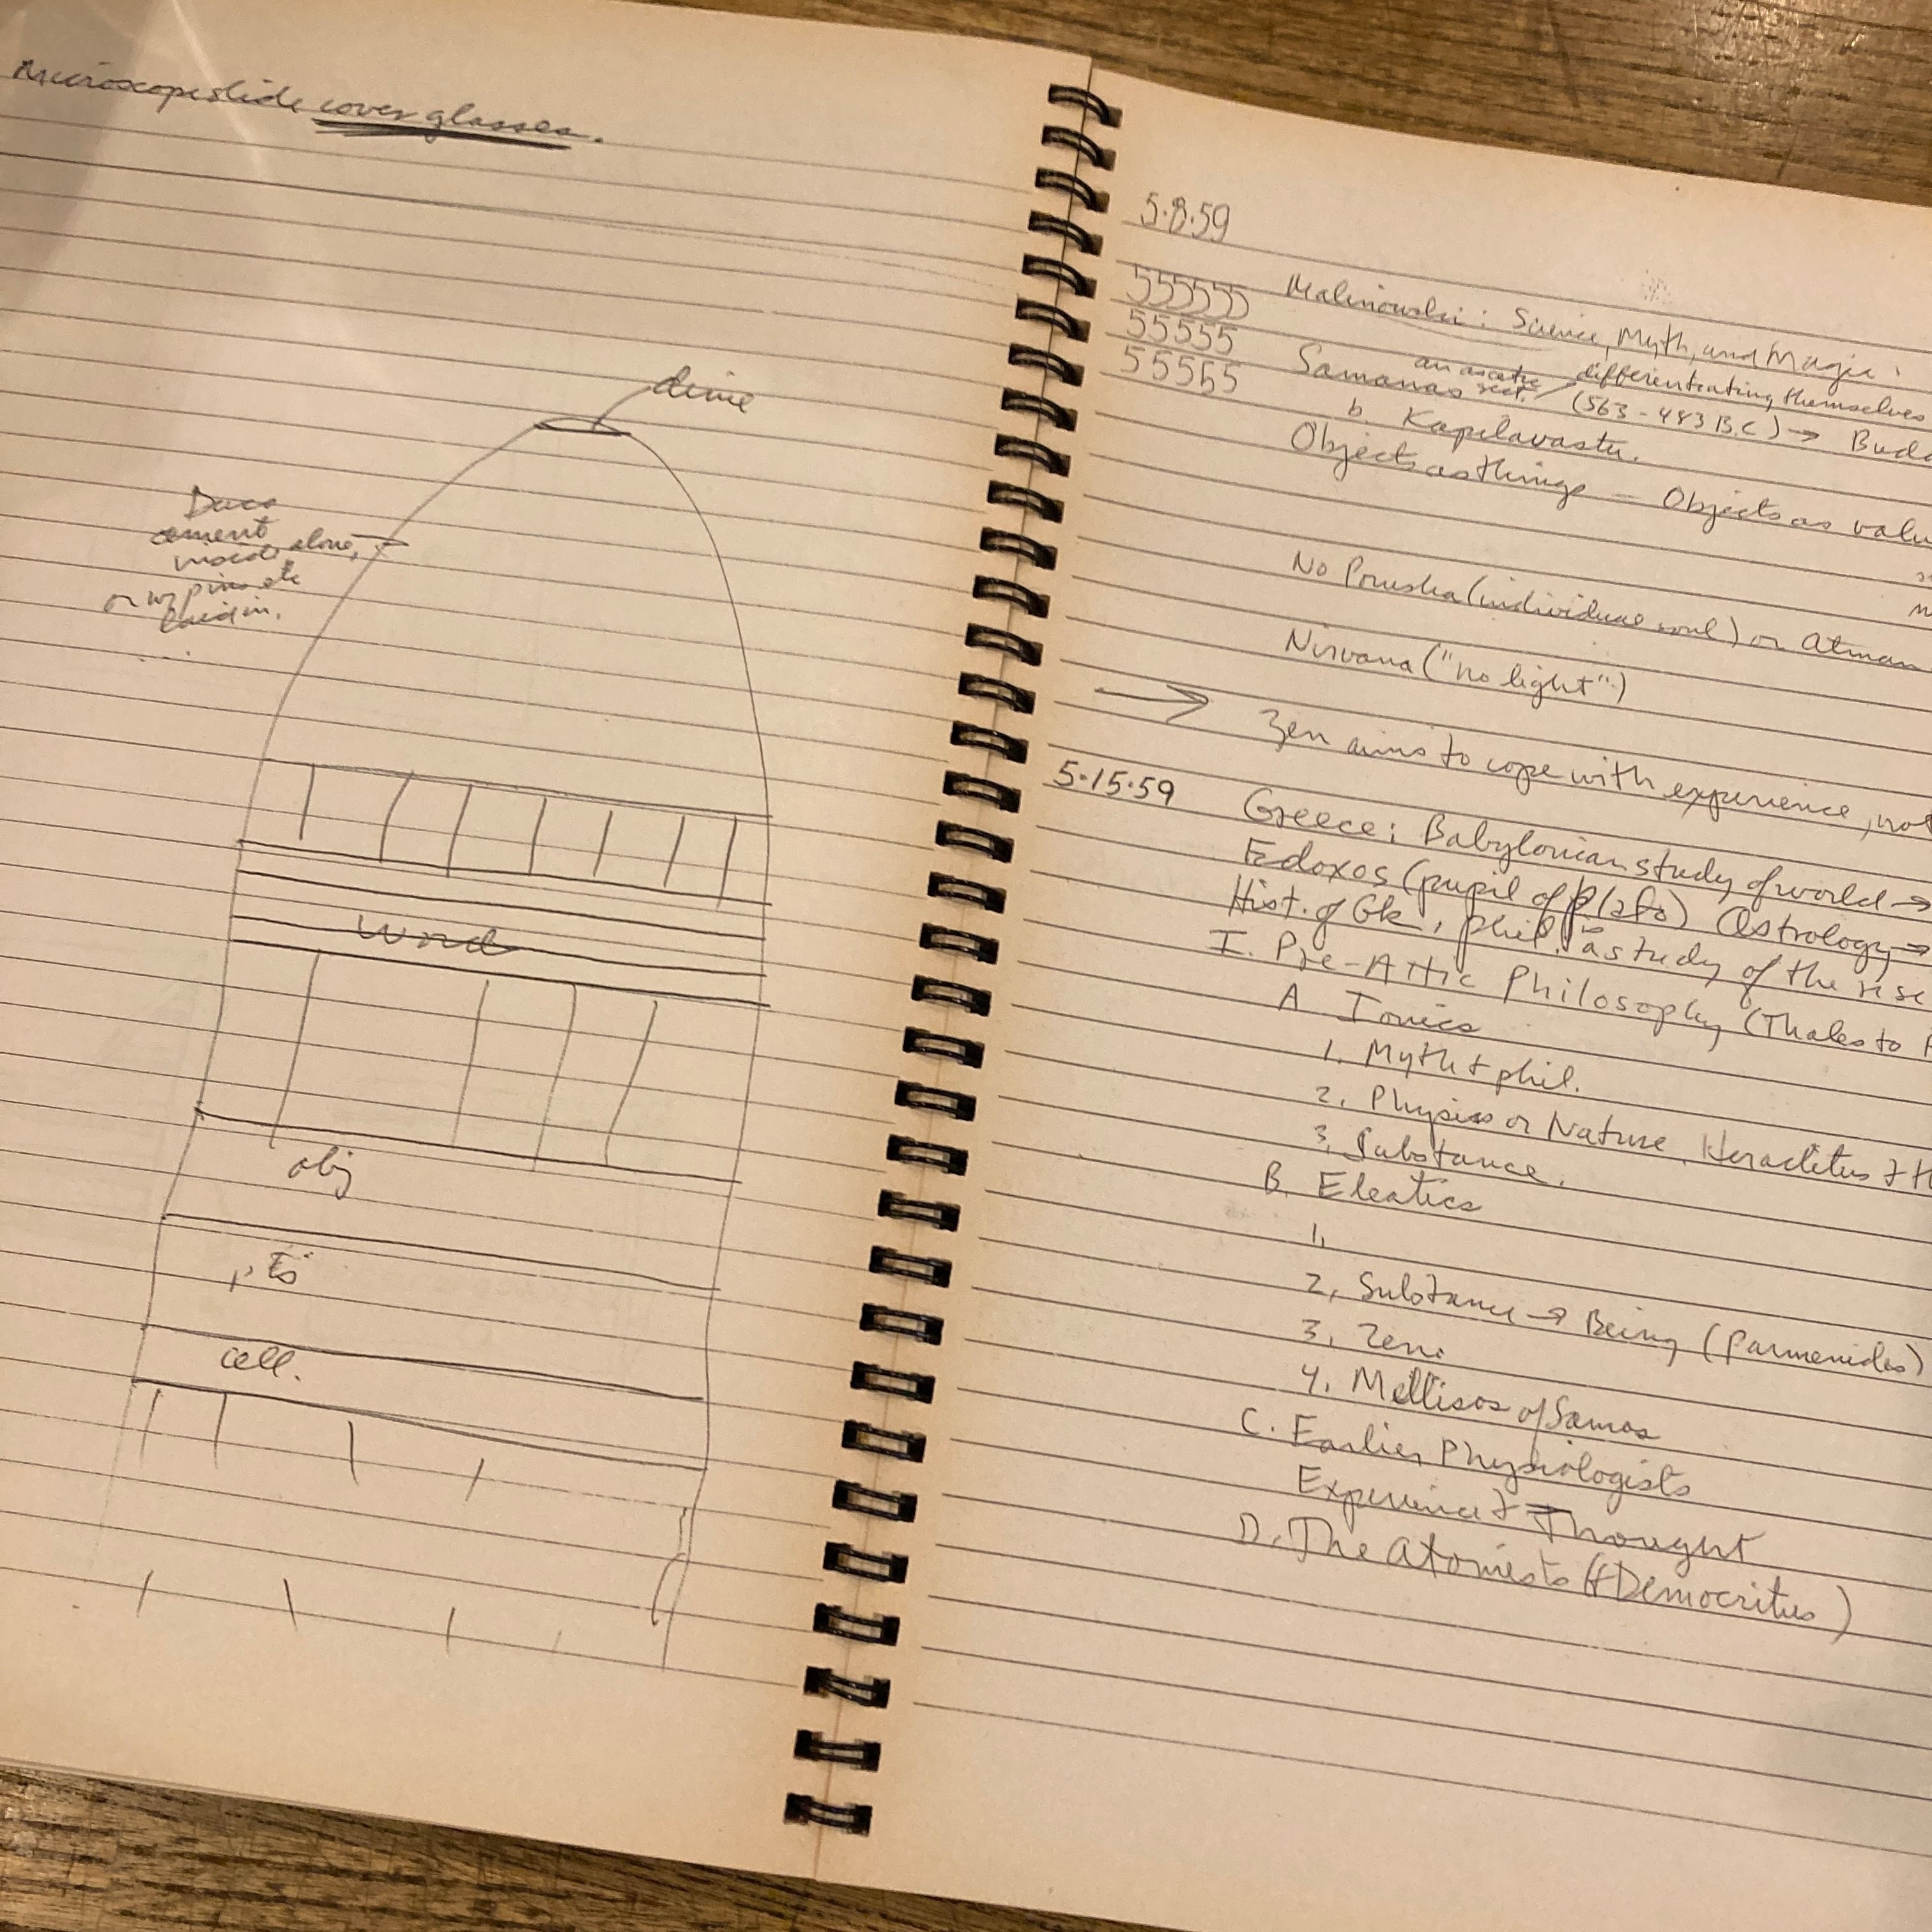 Microscope slide cover glasses.
dime
Duco
cement
inside alone,
or w/ pins etc
laid in.
word
obj
pts
cell.
5.8.59
555555
55555
55555
Malinowski: Science, Myth, and Magic:
an ascetic sect. differentiating themselves
Samanas (563-483 B.C) → Budd
b. Kapilavastu.
Objects as things — Objects as valu
No Porusha (individual soul) or Atman
Nirvana ("no light")
→ Zen aims to cope with experience, not
5.15.59
Greece: Babylonian study of world →
Edoxos (pupil of Plato) Astrology →
Hist. of Gk. phil. as study of the rise
I. Pre-Attic Philosophy (Thales to
A Ionics
1. Myth & phil.
2. Physis or Nature. Heraclitus &
3. Substance.
B. Eleatics
1.
2. Substance → Being (Parmenides)
3. Zeno
4. Mellisos of Samos
C. Earlier Physiologists
Experience & Thought
D. The Atomists (& Democritus)